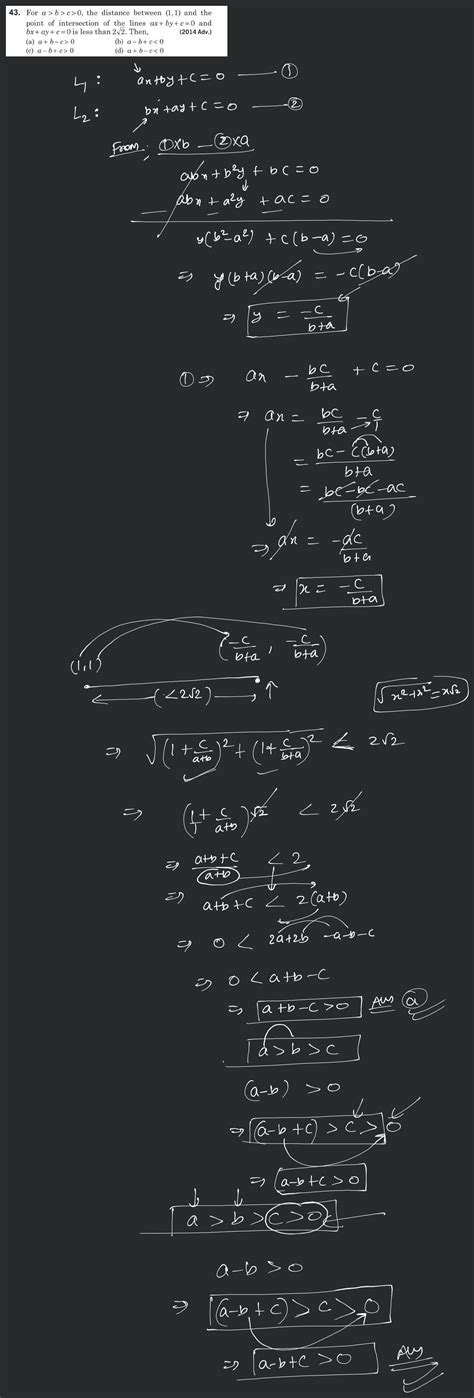 43. For a > b > c > 0, the distance between (1, 1) and the
point of intersection of the lines ax + by + c = 0 and
bx + ay + c = 0 is less than 2√2. Then, (2014 Adv.)
(a) a + b – c > 0 (b) a – b + c < 0
(c) a – b + c > 0 (d) a + b – c < 0
L₁ : ax+by+c=0 — ①
L₂ : bx+ay+c=0 — ②
From, ①×b — ②×a
abx + b²y + bc = 0
abx + a²y + ac = 0
y(b²-a²) + c(b-a) = 0
⇒ y(b+a)(b-a) = -c(b-a)
⇒ y = -c/(b+a)
① ⇒ ax - bc/(b+a) + c = 0
⇒ ax = bc/(b+a) - c/1
= (bc - c(b+a))/(b+a)
= (bc - bc - ac)/(b+a)
⇒ ax = -ac/(b+a)
⇒ x = -c/(b+a)
(1,1) (-c/(b+a), -c/(b+a))
(<2√2)
√(x²+x²) = x√2
⇒ √((1+c/(a+b))² + (1+c/(b+a))²) < 2√2
⇒ (1/1 + c/(a+b))√2 < 2√2
⇒ (a+b+c)/(a+b) < 2
⇒ a+b+c < 2(a+b)
⇒ 0 < 2a+2b -a-b-c
⇒ 0 < a+b-c
⇒ a+b-c>0 Ans (a)
a>b>c
(a-b) > 0
⇒ (a-b+c) > c > 0
⇒ a-b+c > 0
a > b > c > 0
a-b > 0
⇒ (a-b+c) > c > 0
⇒ a-b+c > 0 Ans